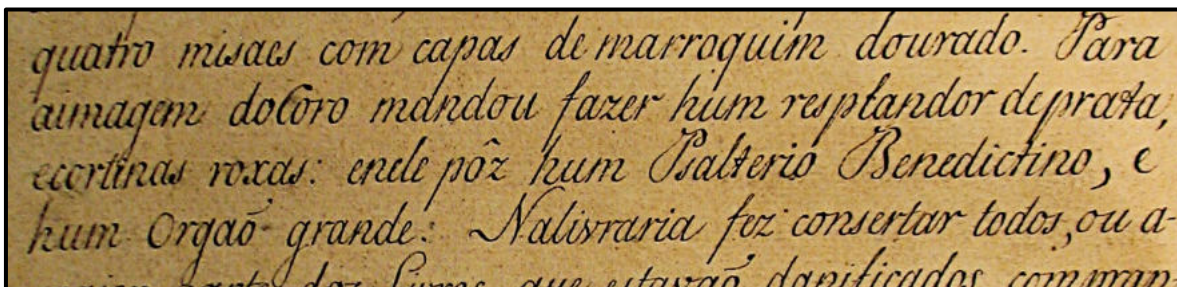 quatro misaes com capas de marroquim dourado. Para
aimagem doCoro mandou fazer hum resplandor deprata,
ecortinas roxas: enele pôz hum Psalterio Benedictino, e
hum Orgaõ grande: Nalivraria fez consertar todos, ou a-
parte dos Livros, que estavaõ danificados, comman-